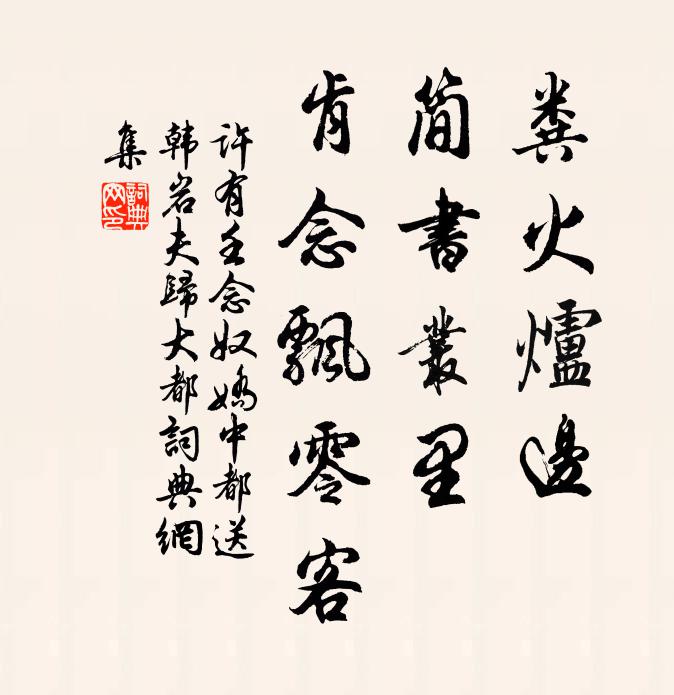 糞火爐邊
簡書叢里
肯念飄零客
許有壬念奴嬌中都送
韩岩夫歸大都詞典網
集
詞典
网印